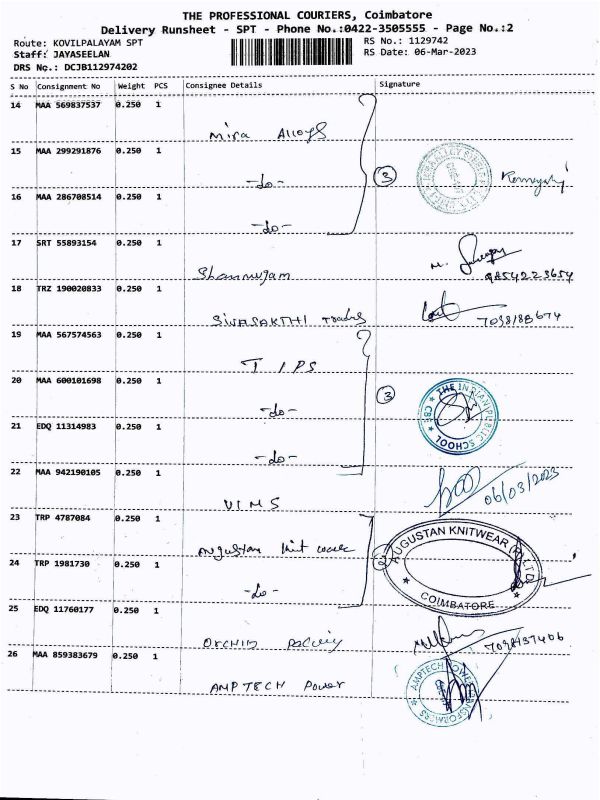 THE PROFESSIONAL COURIERS, Coimbatore
Delivery Runsheet - SPT - Phone No.:0422-3505555 - Page No.:2
Route: KOVILPALAYAM SPT
RS No.: 1129742
Staff: JAYASEELAN
RS Date: 06-Mar-2023
DRS No.: DCJB112974202
S No Consignment No Weight PCS Consignee Details Signature
14 MAA 569837537 0.250 1
Mira Alloys
15 MAA 299291876 0.250 1
-do-
3
16 MAA 286708514 0.250 1
-do-
17 SRT 55893154 0.250 1
Shanmugam
9854223654
18 TRZ 190020833 0.250 1
SIVASAKTHI Traders
19 MAA 567574563 0.250 1
T I PS
20 MAA 600101698 0.250 1
-do-
3
THE INDIAN PUBLIC SCHOOL
CBE
21 EDQ 11314983 0.250 1
-do-
22 MAA 942190105 0.250 1
VIMS
06/03/2023
23 TRP 4787084 0.250 1
Augustan Knit wear
AUGUSTAN KNITWEAR (P) LTD
COIMBATORE
24 TRP 1981730 0.250 1
-do-
2
25 EDQ 11760177 0.250 1
26 MAA 859383679 0.250 1
AMPTECH Power
AMPTECH POWER TRANSFORMERS